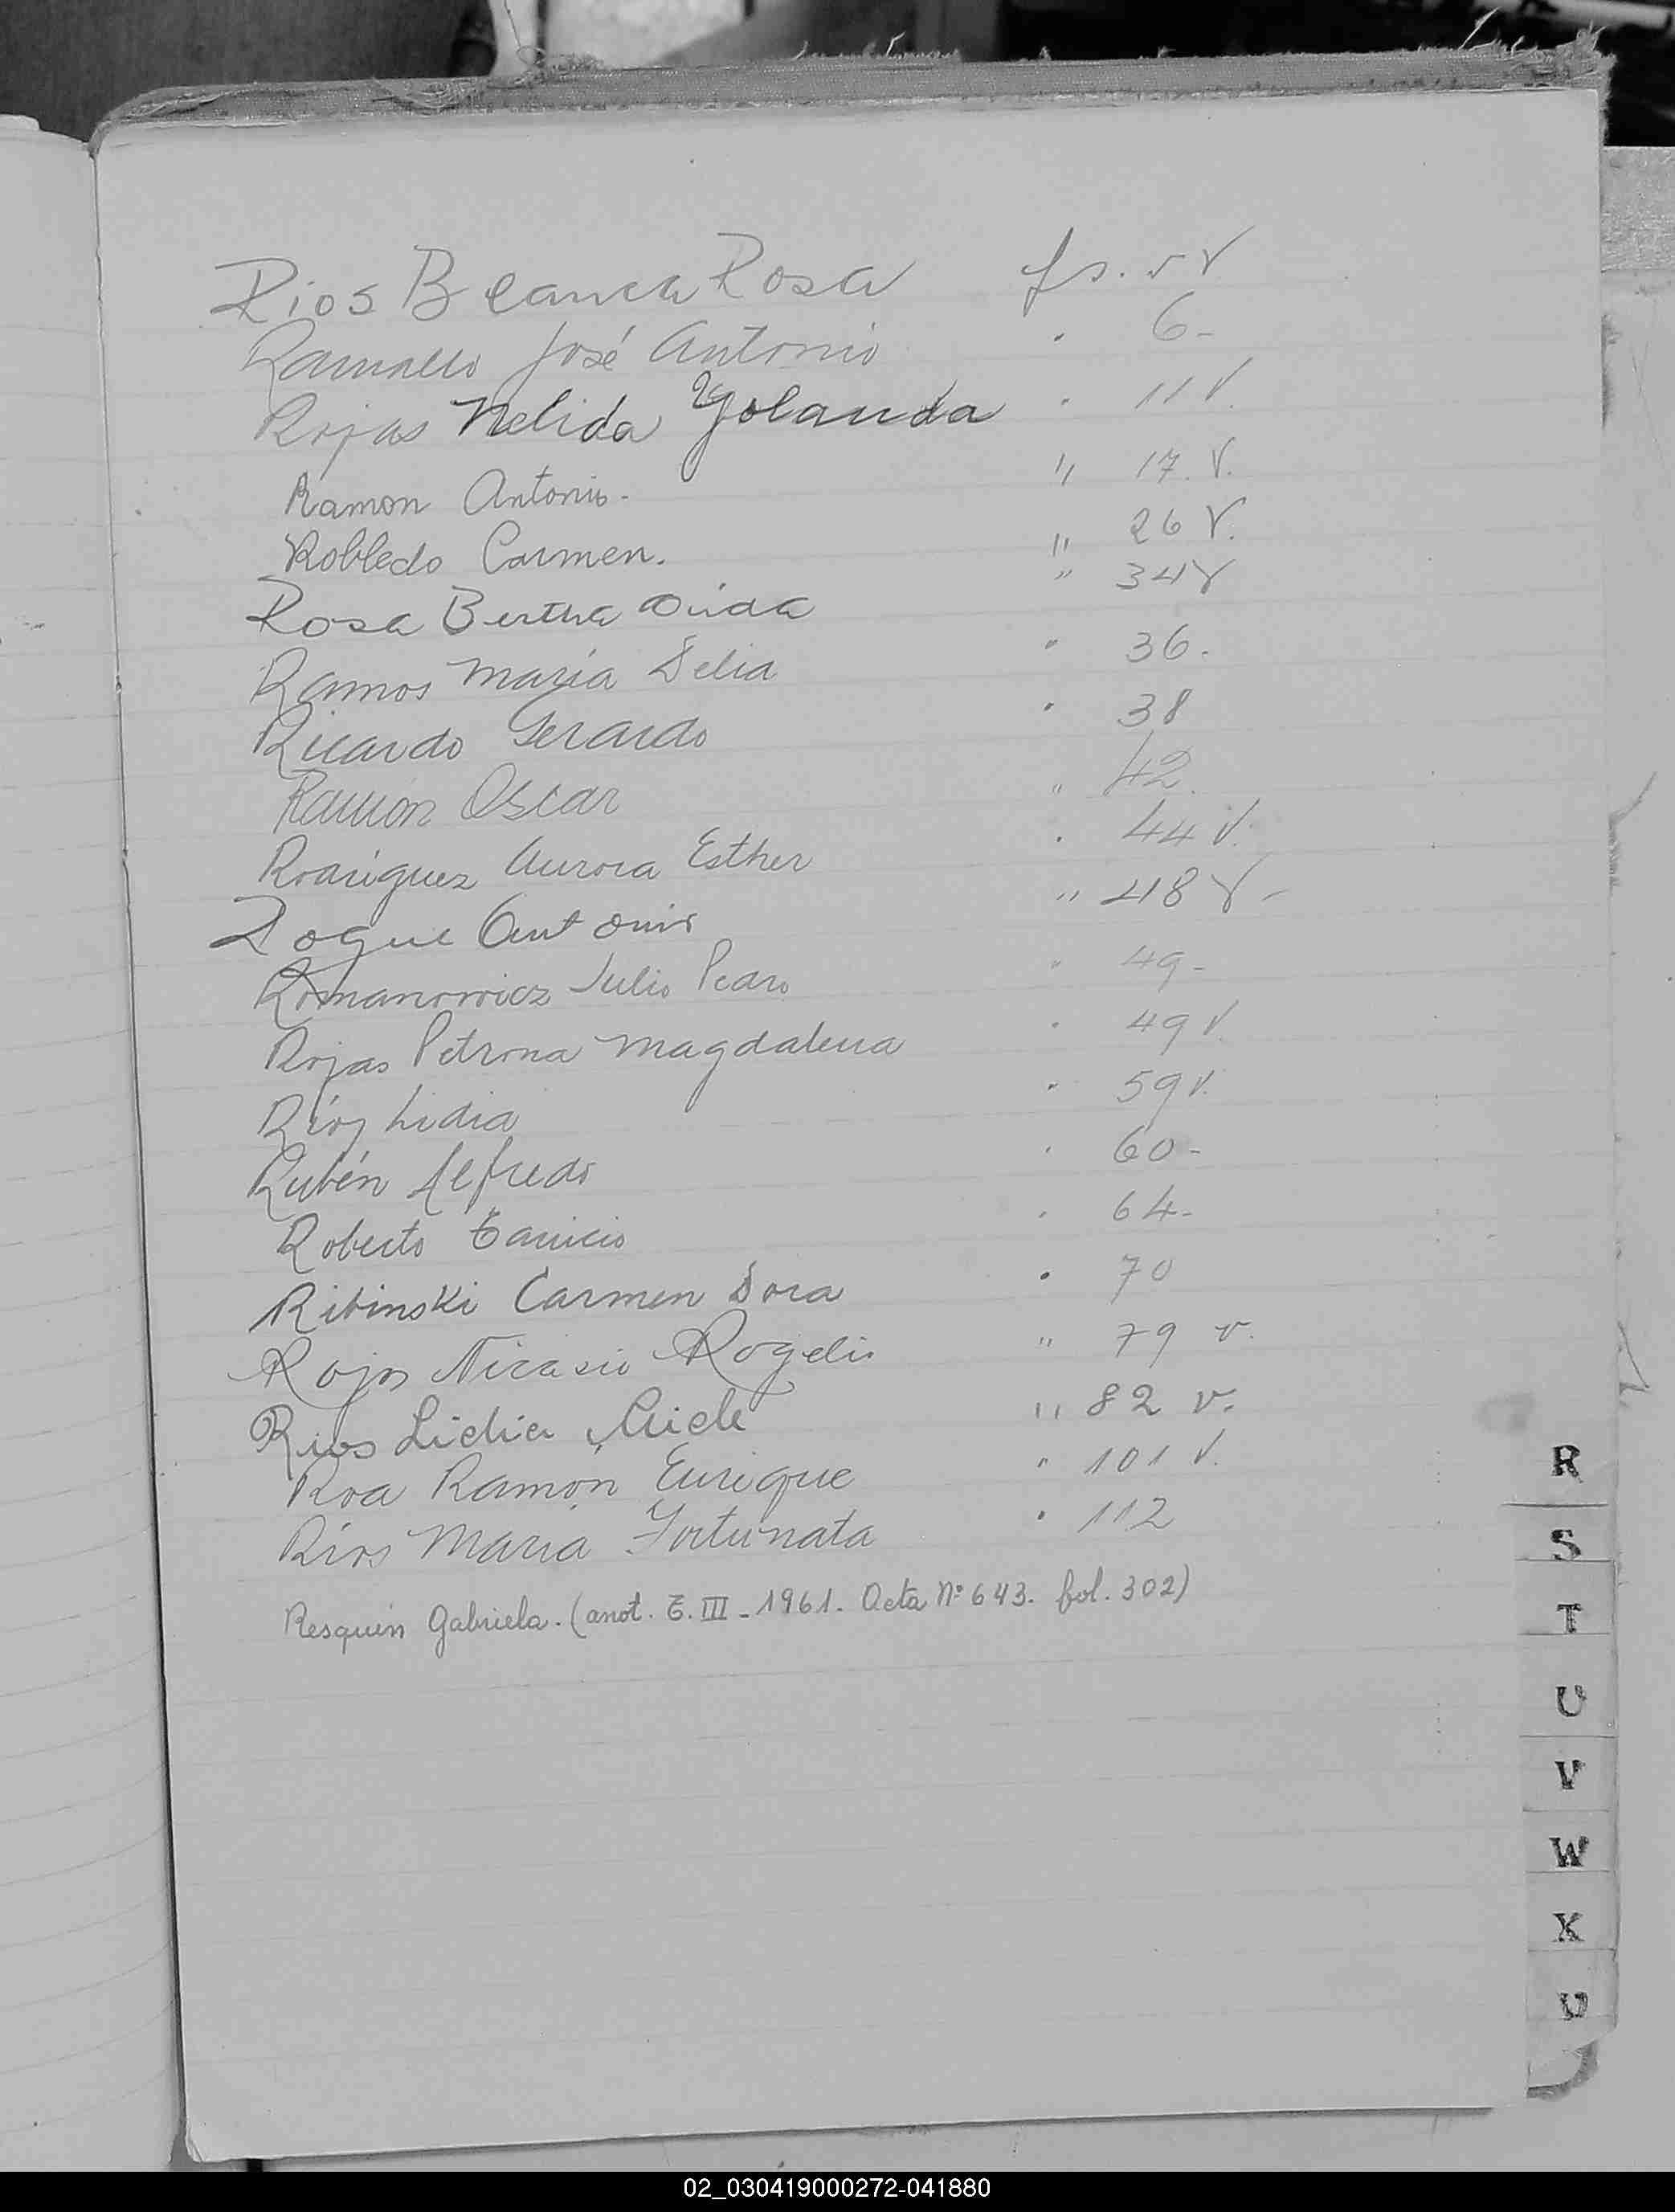 Rios Blanca Rosa fs. 5 V
Ramallo José Antonio " 6-
Rojas Nelida Yolanda " 11 V.
Ramon Antonio. " 17. V.
Robledo Carmen. " 26 V.
Rosa Bertha " 34 V
Ramos María Delia " 36.
Ricardo Gerardo " 38
Ramón Oscar " 42.
Rodriguez Aurora Esther " 44 V.
Roque Antonio " 48 V-
Romanowicz Julio Pedro " 49-
Rojas Petrona Magdalena " 49 V.
Ríos Lidia " 59 V.
Rubén Alfredo " 60-
Roberto " 64-
Ribinski Carmen Dora " 70
Rojas Nicasio Rogelio " 79 v.
Rios Lidia " 82 v.
Roa Ramón Enrique " 101 V.
Ríos María Fortunata " 112
Resquín Gabriela. (anot. T. III - 1961. Acta Nº 643. fol. 302)
R
S
T
U
V
W
X
02_030419000272-041880